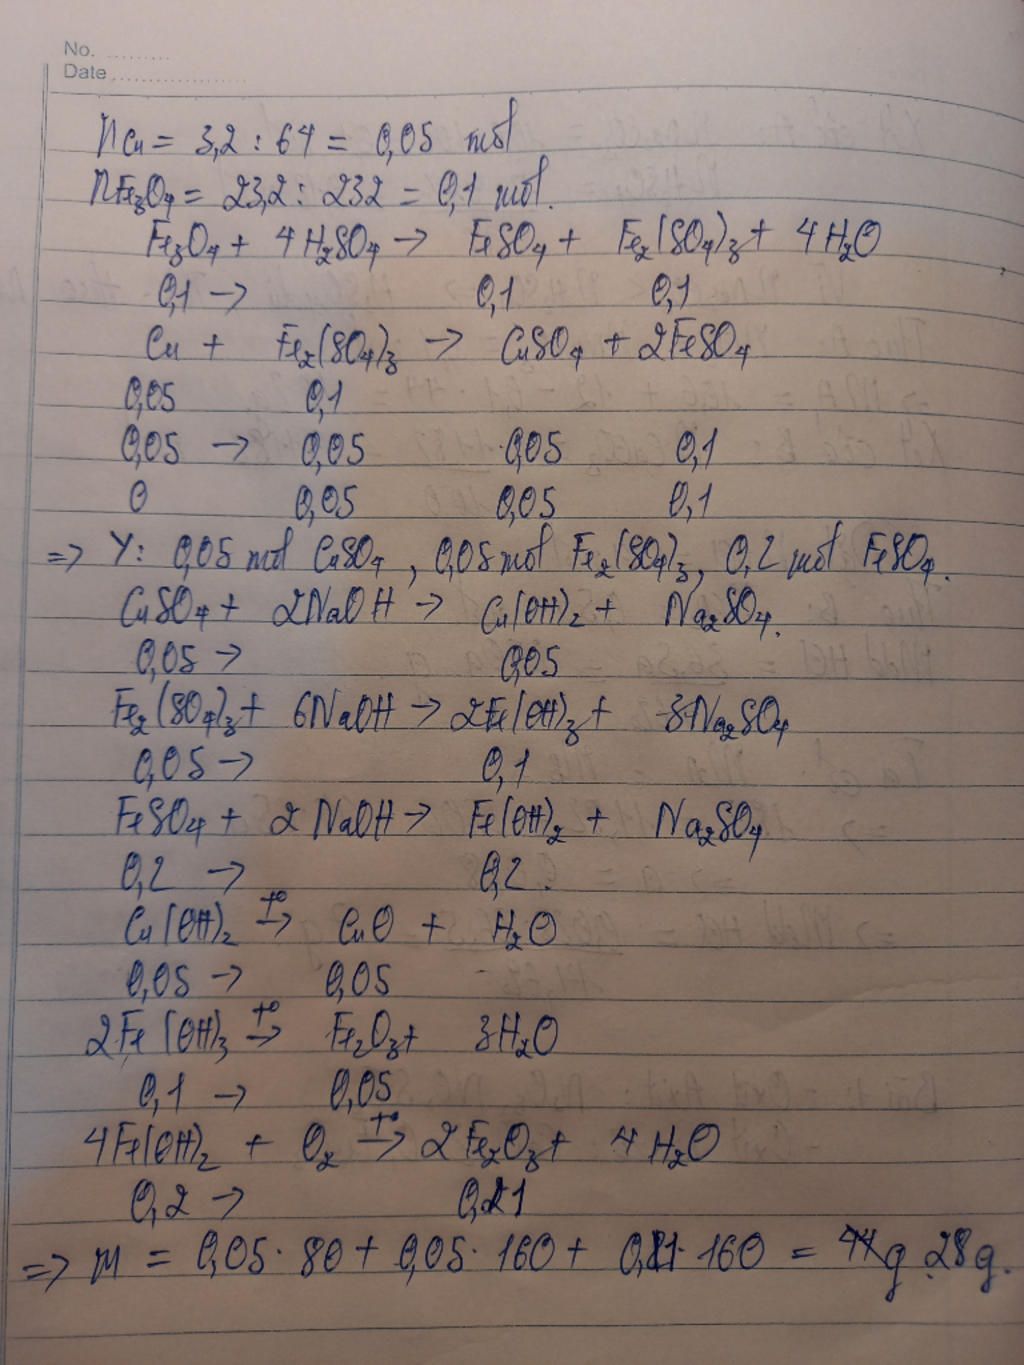 No. .........
Date ...................
nCu = 3,2 : 64 = 0,05 mol
nFe₃O₄ = 23,2 : 232 = 0,1 mol.
Fe₃O₄ + 4H₂SO₄ → FeSO₄ + Fe₂(SO₄)₃ + 4H₂O
0,1 → 0,1 0,1
Cu + Fe₂(SO₄)₃ → CuSO₄ + 2FeSO₄
0,05 0,1
0,05 → 0,05 0,05 0,1
0 0,05 0,05 0,1
=> Y: 0,05 mol CuSO₄, 0,05 mol Fe₂(SO₄)₃, 0,2 mol FeSO₄.
CuSO₄ + 2NaOH → Cu(OH)₂ + Na₂SO₄.
0,05 → 0,05
Fe₂(SO₄)₃ + 6NaOH → 2Fe(OH)₃ + 3Na₂SO₄
0,05 → 0,1
FeSO₄ + 2NaOH → Fe(OH)₂ + Na₂SO₄
0,2 → 0,2.
Cu(OH)₂ t° → CuO + H₂O
0,05 → 0,05
2Fe(OH)₃ t° → Fe₂O₃ + 3H₂O
0,1 → 0,05
4Fe(OH)₂ + O₂ t° → 2Fe₂O₃ + 4H₂O
0,2 → 0,1
=> m = 0,05 . 80 + 0,05 . 160 + 0,1 . 160 = 28g.